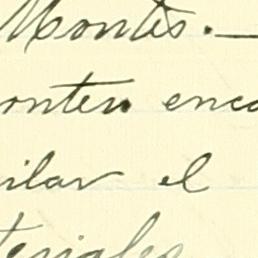 Montes.—
onten enco
ilar el
teriales